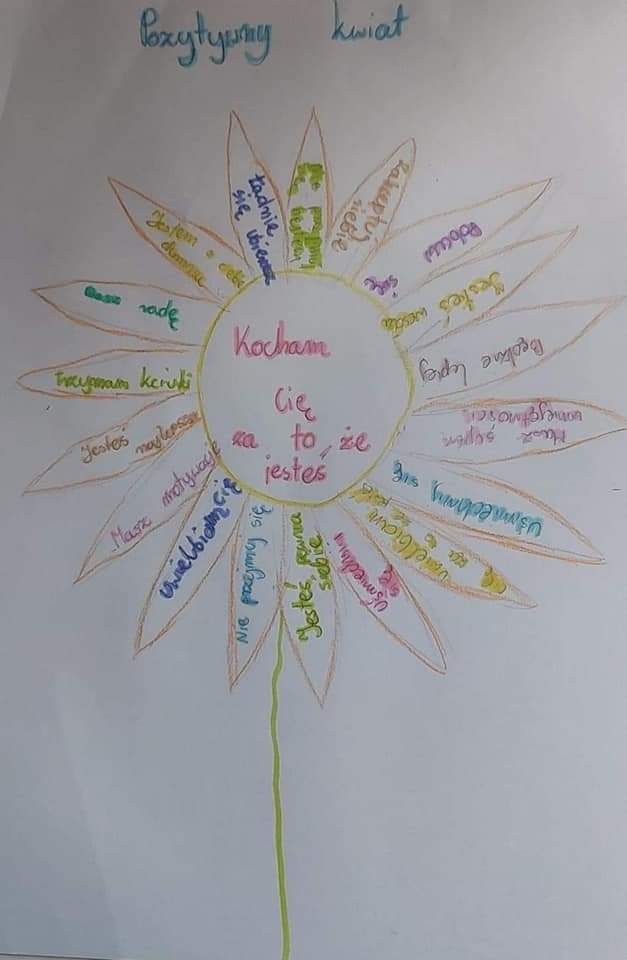 Pozytywny kwiat
Kocham
Cię
za to, że
jesteś
Ładnie
się ubierasz
Zaakceptuj
siebie
się
Jesteś wesoła
Będzie lepiej
Masz
umiejętności
Uśmiechnij się
Uwielbiam
Uśmiechnij
się
Jesteś pewna
siebie
Nie poddawaj się
Uwielbiam Cię
Masz motywację
Jesteś najlepsza
Trzymam kciuki
Dasz radę
Jestem z Ciebie
dumna